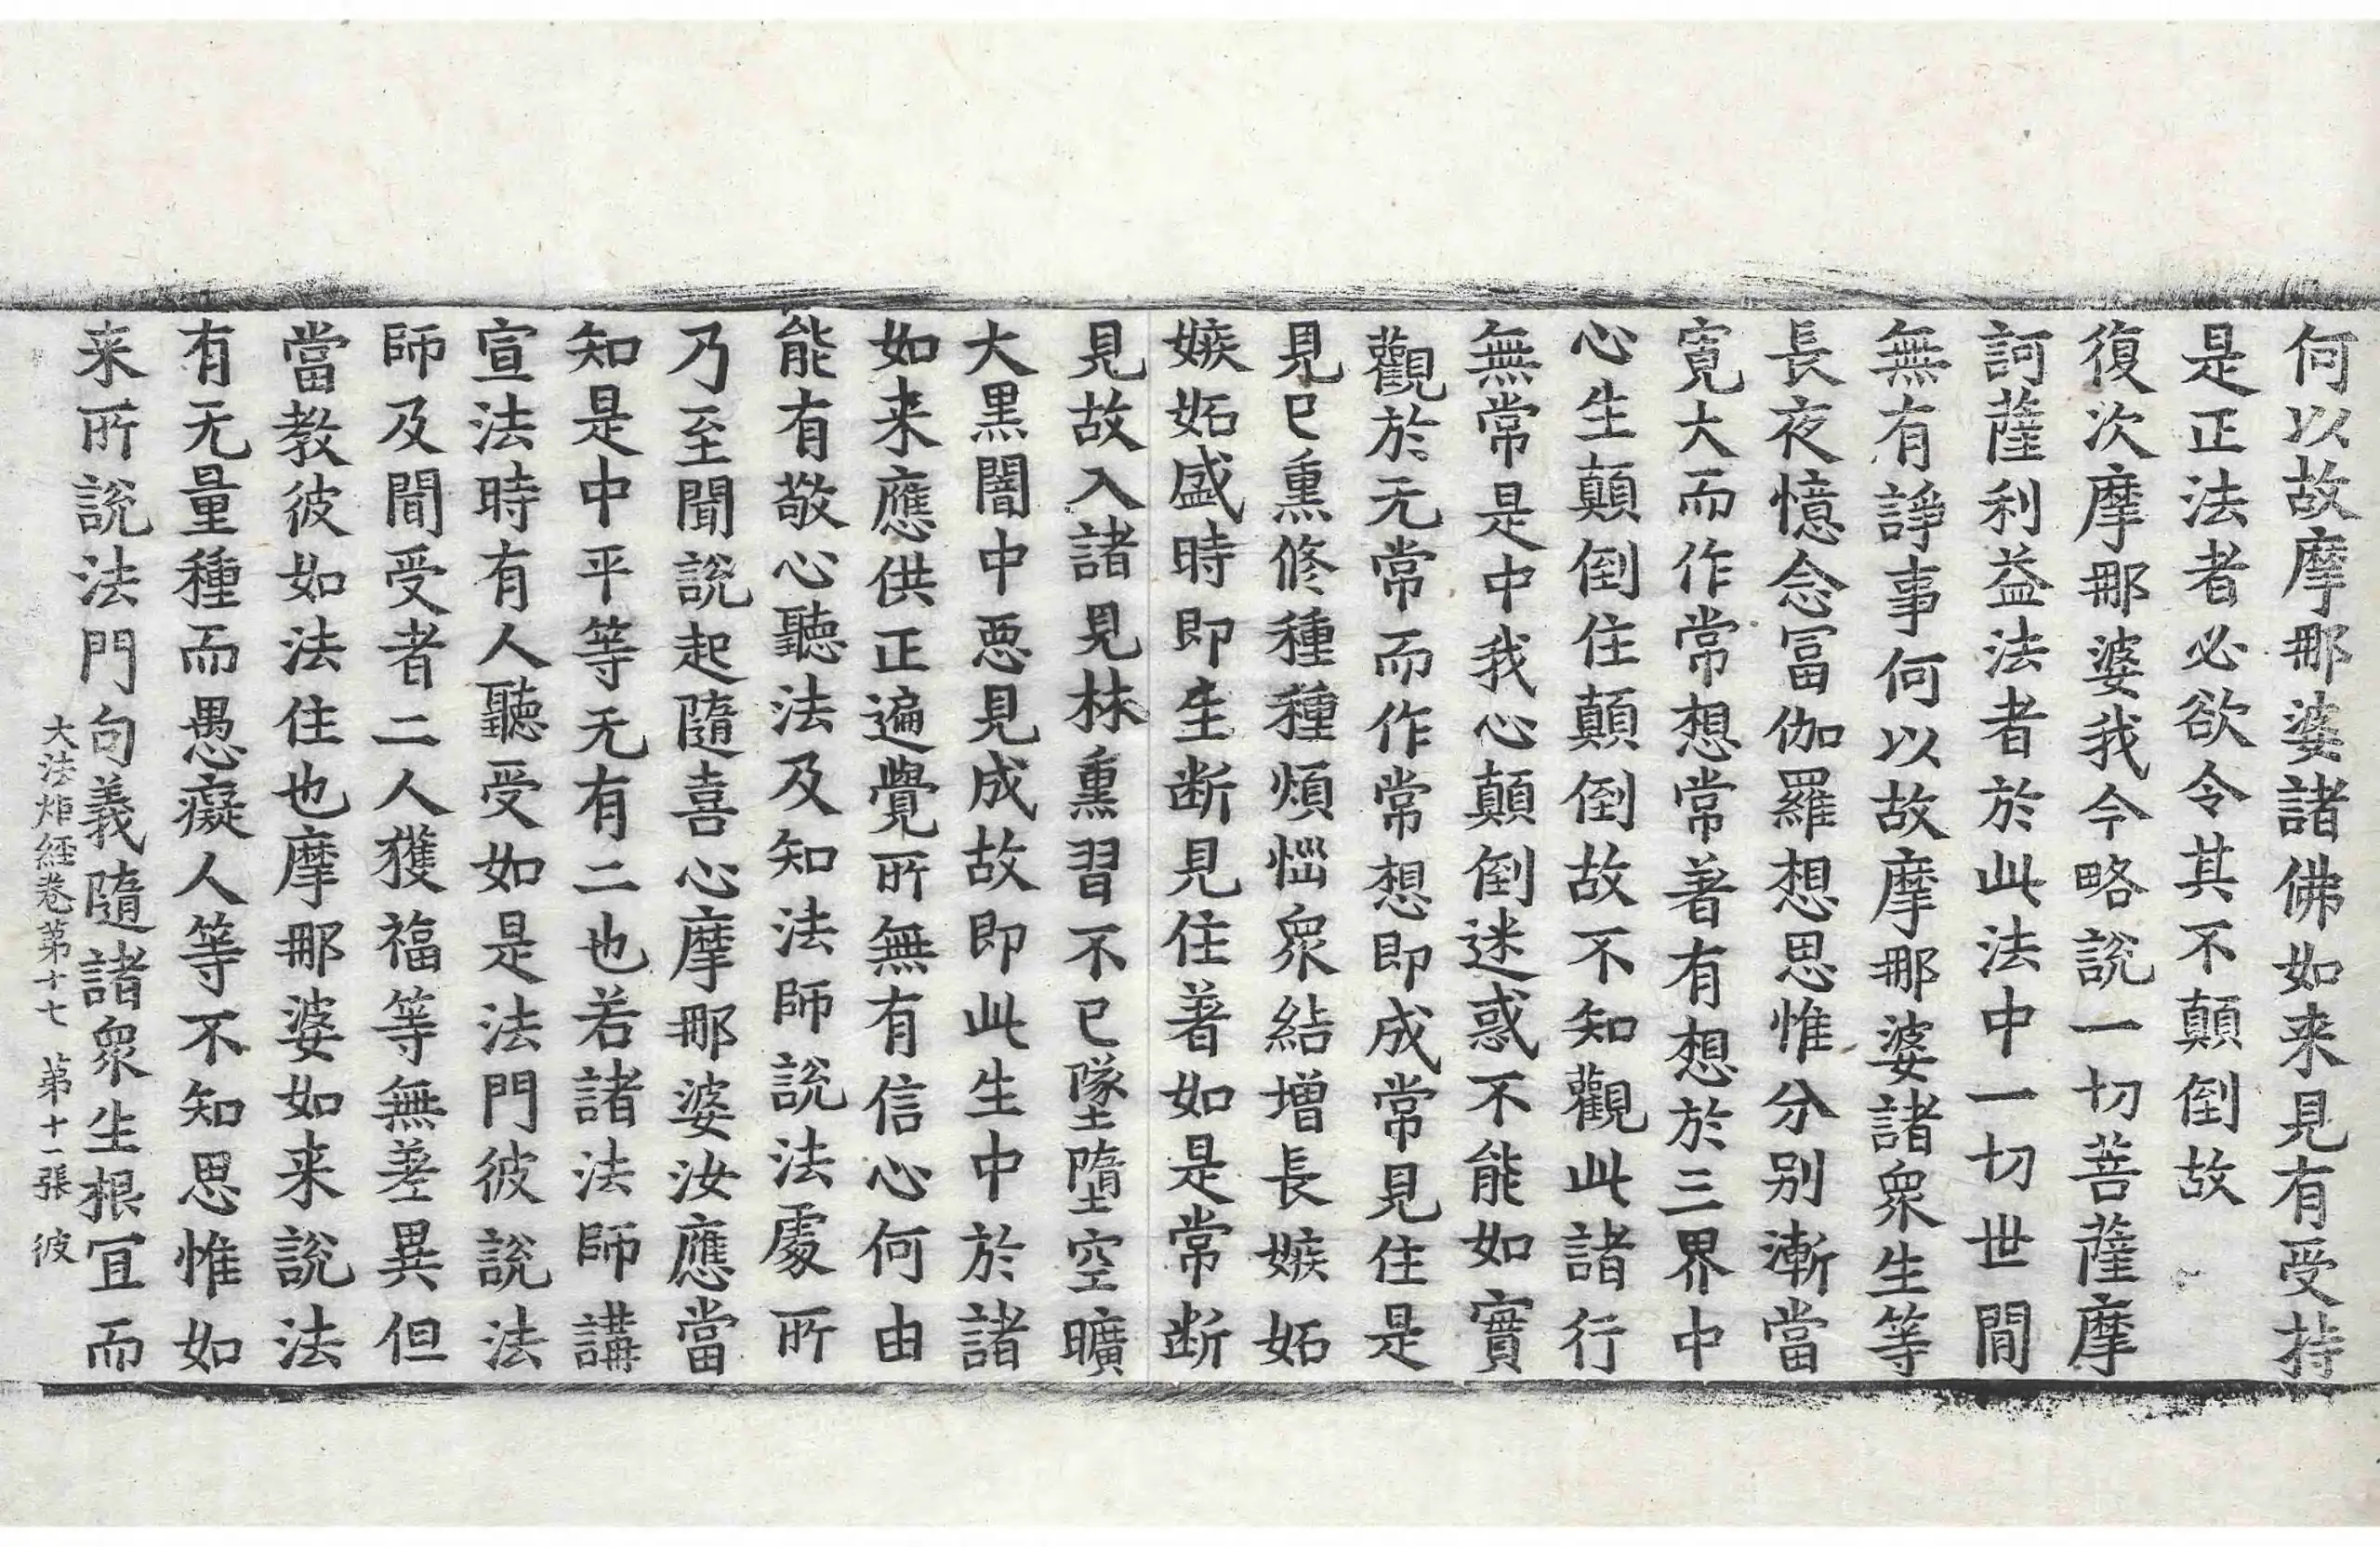 何以故摩那婆諸佛如来見有受持
是正法者必欲令其不顛倒故
復次摩那婆我今略說一切菩薩摩
訶薩利益法者於此法中一切世間
無有諍事何以故摩那婆諸衆生等
長夜憶念冨伽羅想思惟分别漸當
寬大而作常想常著有想於三界中
心生顛倒住顛倒故不知觀此諸行
無常是中我心顛倒迷惑不能如實
觀於无常而作常想即成常見住是
見已熏修種種煩惱衆結增長嫉妬
嫉妬盛時即生斷見住著如是常斷
見故入諸見林熏習不已墜墮空曠
大黒闇中惡見成故即此生中於諸
如来應供正遍覺所無有信心何由
能有敬心聽法及知法師說法處所
乃至聞說起隨喜心摩那婆汝應當
知是中平等无有二也若諸法師講
宣法時有人聽受如是法門彼說法
師及聞受者二人獲福等無差異但
當教彼如法住也摩那婆如来說法
有无量種而愚癡人等不知思惟如
来所說法門句義隨諸衆生根宜而
大法炬経卷苐十七 苐十一張 彼